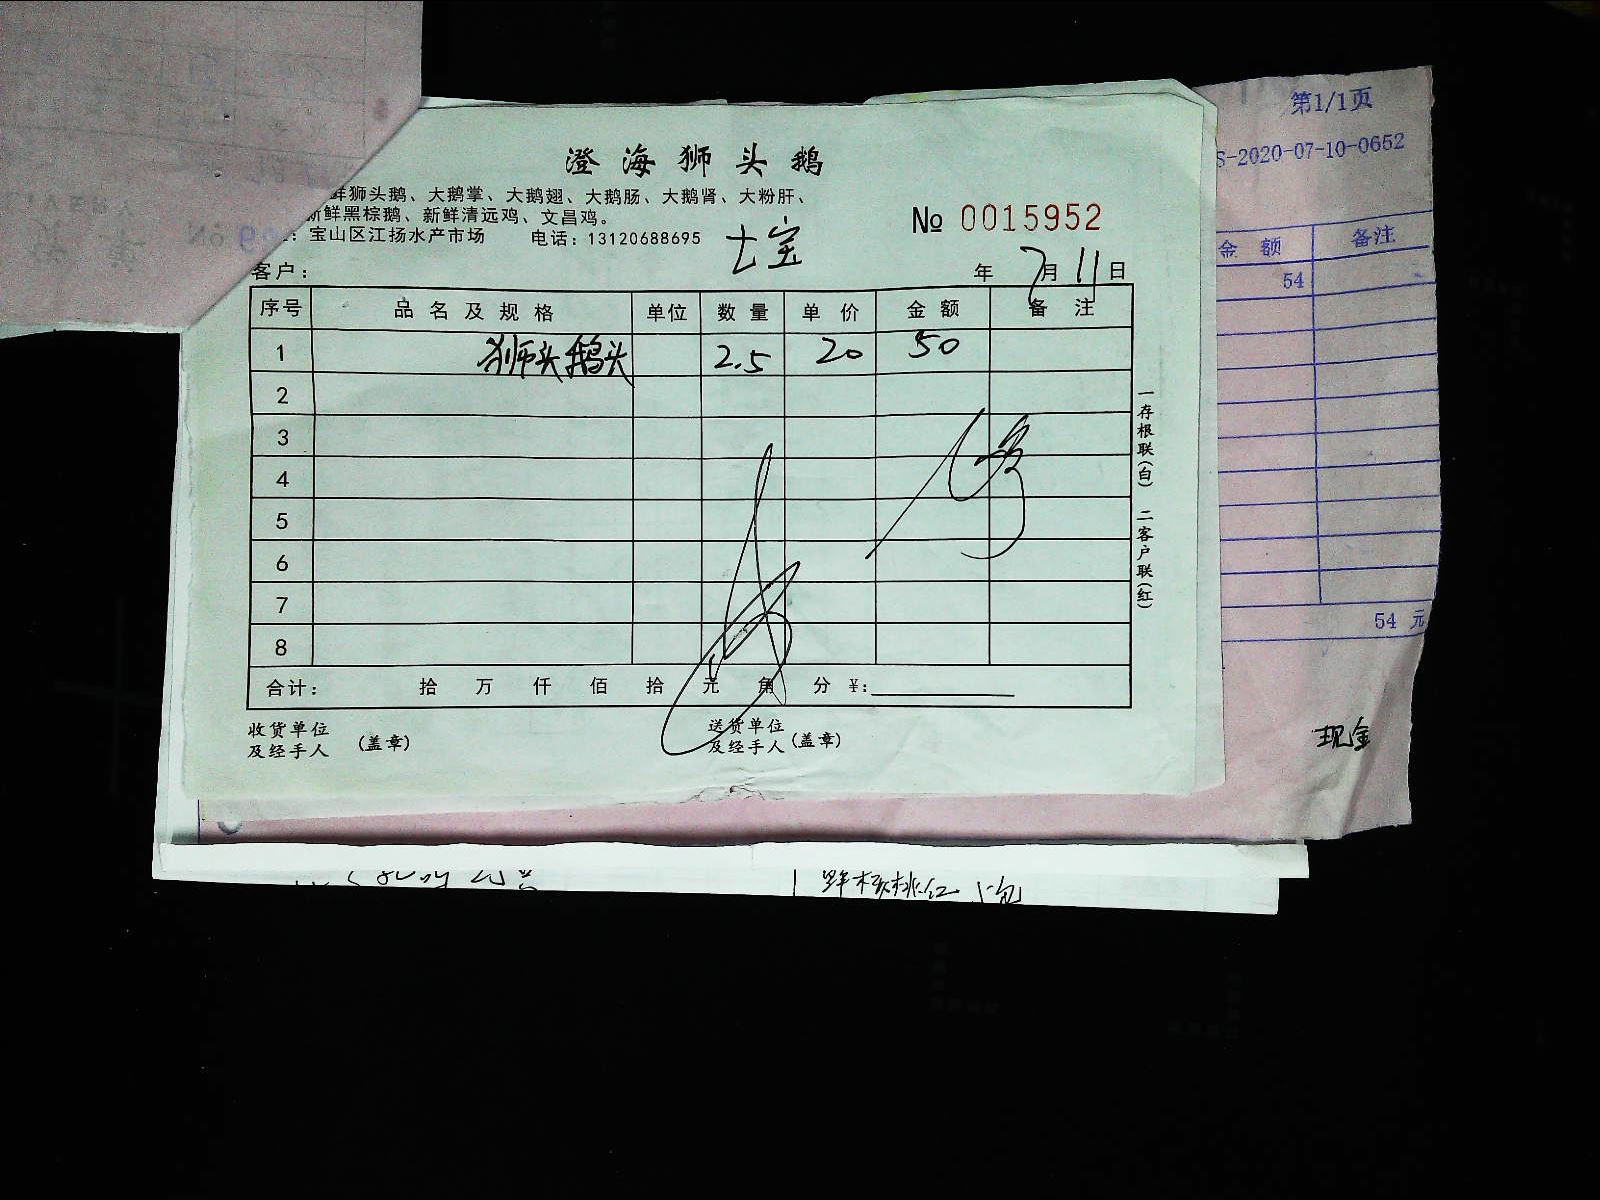 澄海狮头鹅
鲜狮头鹅、大鹅掌、大鹅翅、大鹅肠、大鹅肾、大粉肝、
新鲜黑棕鹅、新鲜清远鸡、文昌鸡。
：宝山区江扬水产市场 电话：13120688695
七宝
№ 0015952
客户： 年 7月 11日
序号 品名及规格 单位 数量 单价 金额 备注
1 狮头鹅头 2.5 20 50
2
3
4
5
6
7
8
合计： 拾 万 仟 佰 拾 元 角 分 ¥:
收货单位
及经手人 （盖章）
送货单位
及经手人（盖章）
一存根联（白） 二客户联（红）
第1/1页
S-2020-07-10-0652
金额 备注
54
54 元
现金